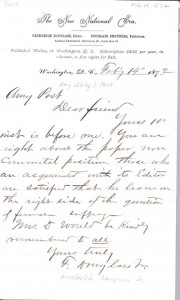 The New National Era,
FREDERICK DOUGLASS, Editor. DOUGLASS BROTHERS, Publishers.
Published Weekly, at Washington, D. C. Subscription $2.50 per year, in
advance, or five copies for $10.
Washington, D. C. Feby 14th 1872
Amy Post
Dear friend
Yours 10
inst is before me. You are
right about the paper, non
Committal position those who
are acquainted with its Editor
are satisfied that he leans on
the right side of the question
of female suffrage
Mrs D would be kindly
remembered to all
Yours truly
F. Douglass Jr
Frederick Douglass Jr.